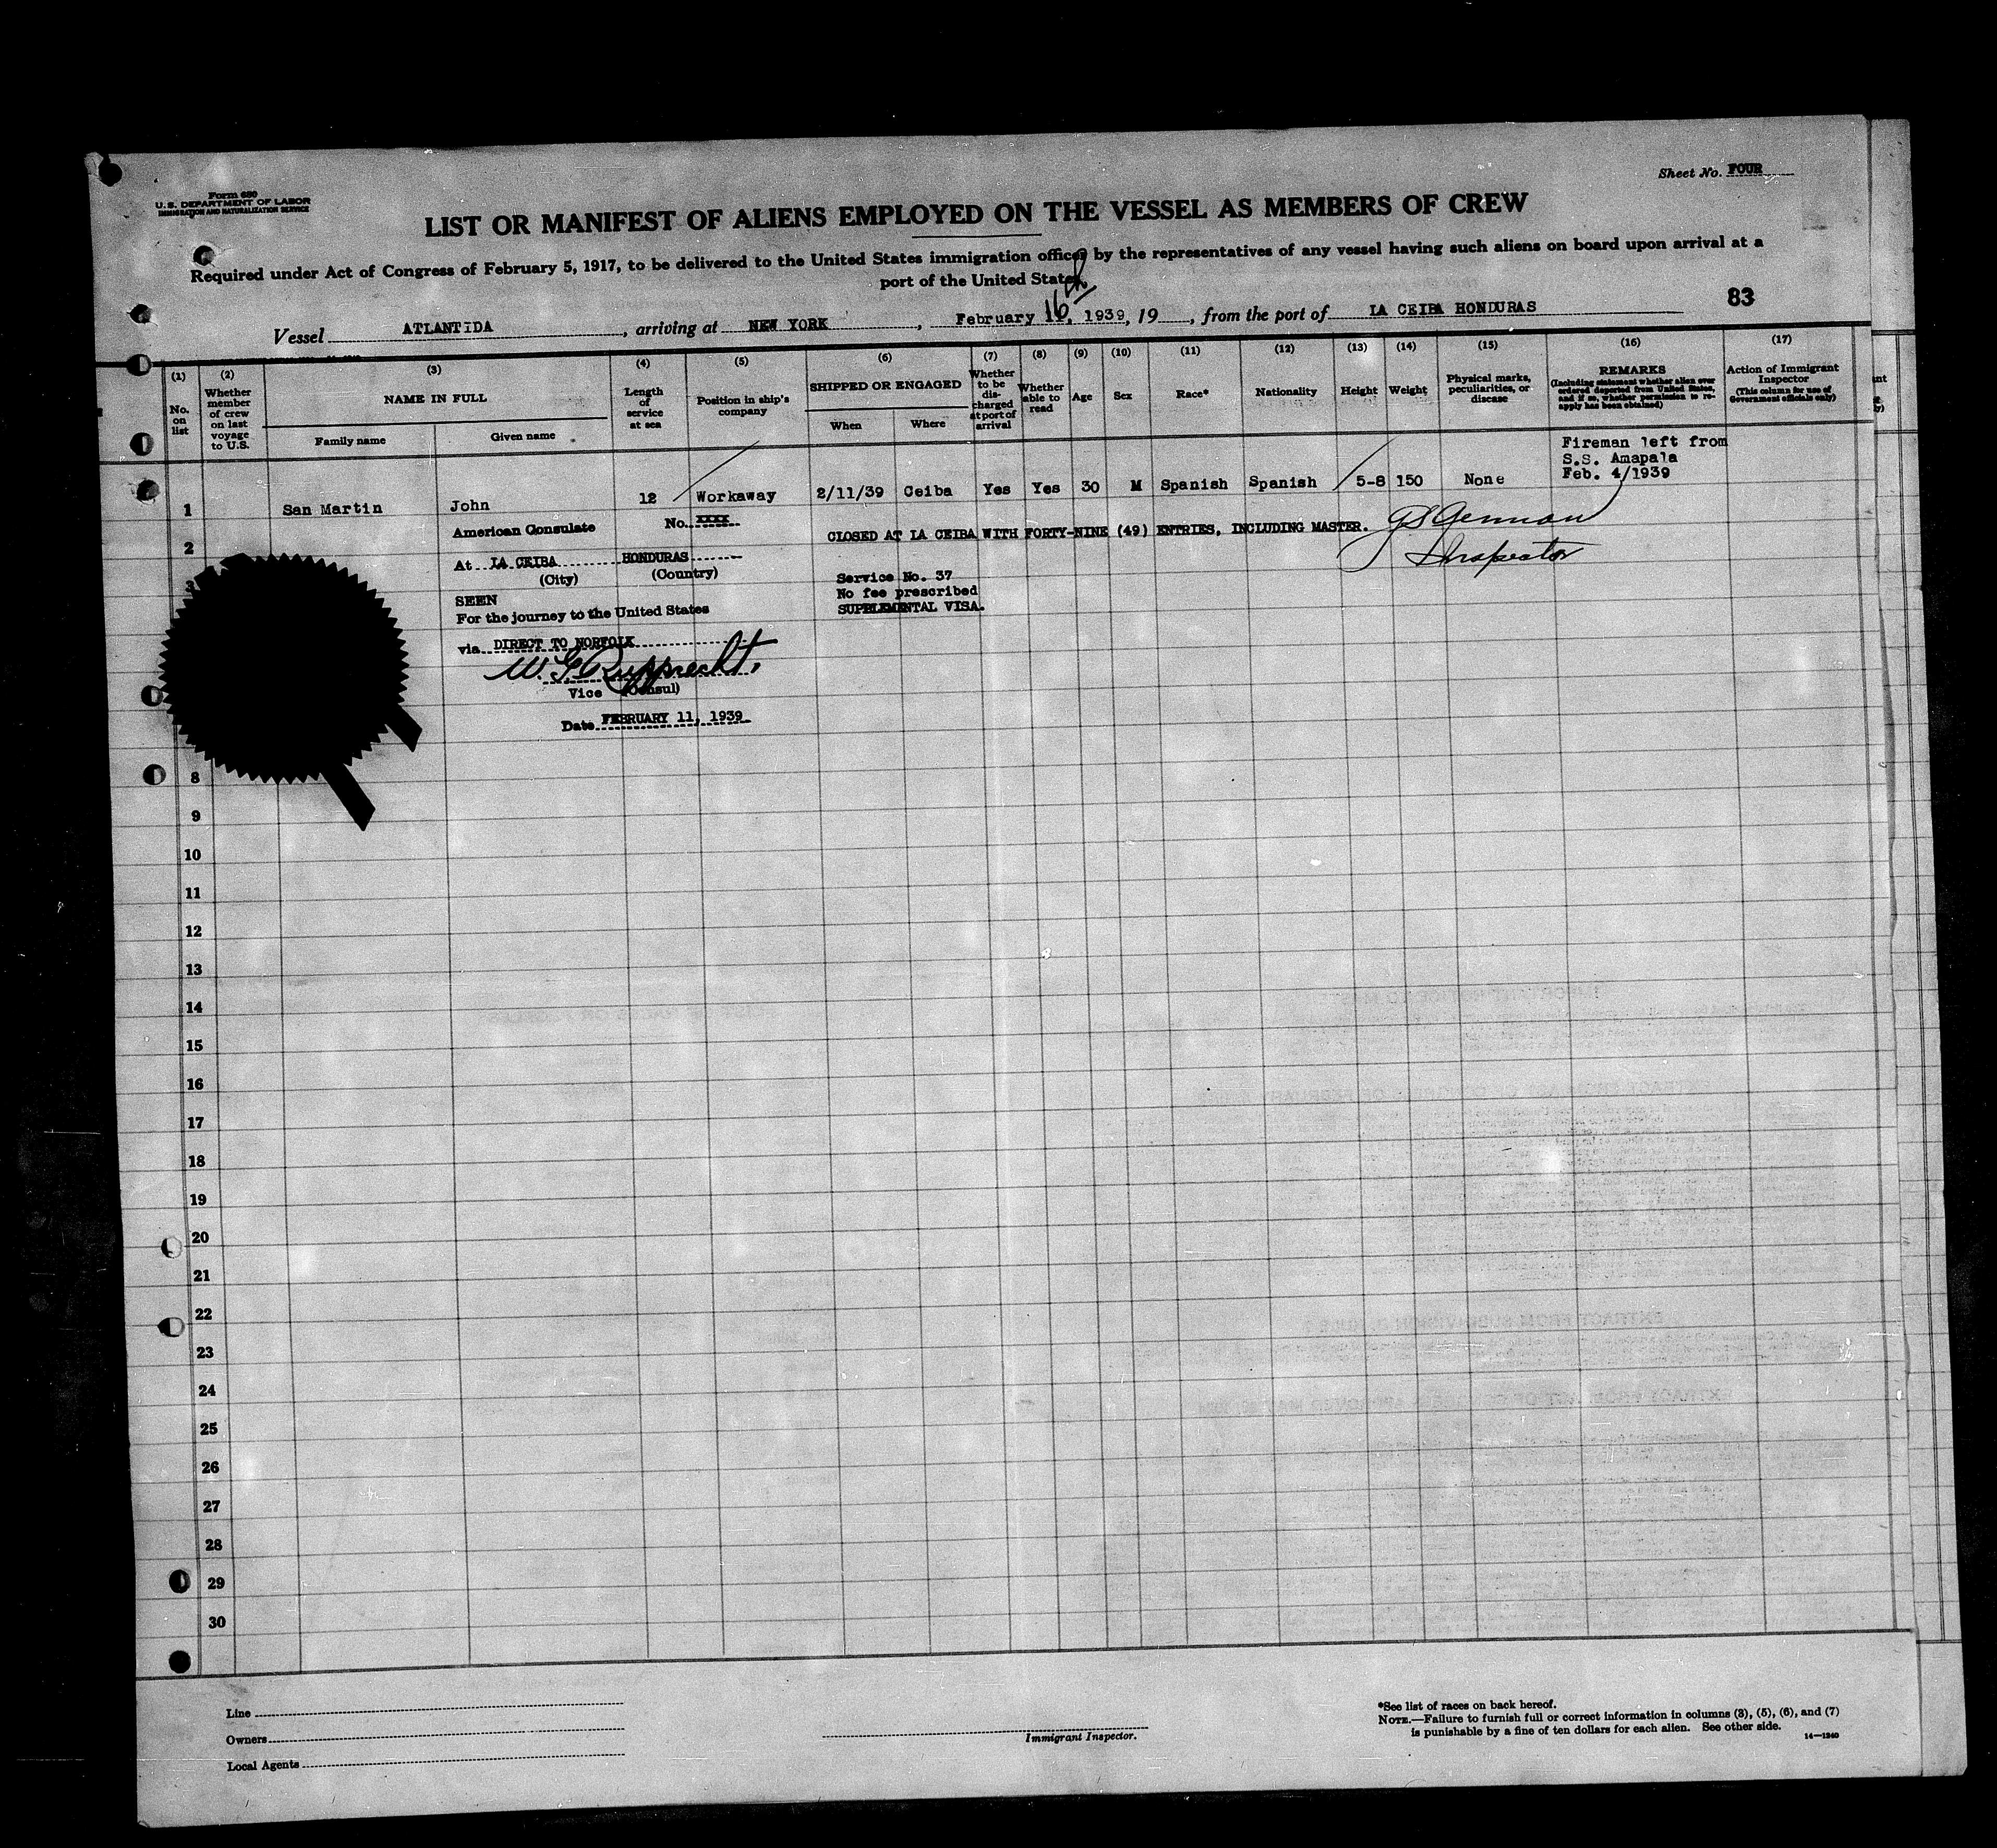 Form 680
U.S. DEPARTMENT OF LABOR
IMMIGRATION AND NATURALIZATION SERVICE
Sheet No. FOUR
LIST OR MANIFEST OF ALIENS EMPLOYED ON THE VESSEL AS MEMBERS OF CREW
Required under Act of Congress of February 5, 1917, to be delivered to the United States immigration officer by the representatives of any vessel having such aliens on board upon arrival at a
port of the United States
83
Vessel ATLANTIDA, arriving at NEW YORK, February 16th, 1939, 19, from the port of LA CEIBA HONDURAS
(1) (2) (3) (4) (5) (6) (7) (8) (9) (10) (11) (12) (13) (14) (15) (16) (17)
No. on list
Whether member of crew on last voyage to U.S.
NAME IN FULL
Family name
Given name
Length of service at sea
Position in ship's company
SHIPPED OR ENGAGED
When
Where
Whether to be discharged at port of arrival
Whether able to read
Age
Sex
Race*
Nationality
Height
Weight
Physical marks, peculiarities, or disease
REMARKS
(Including statement whether alien ever ordered deported from United States, and if so, whether permission to reapply has been obtained)
Action of Immigrant Inspector
(This column for use of Government officials only)
Fireman left from
S.S. Amapala
Feb. 4/1939
1 San Martin John 12 Workaway 2/11/39 Ceiba Yes Yes 30 M Spanish Spanish 5-8 150 None
American Consulate No. XXXX
CLOSED AT LA CEIBA WITH FORTY-NINE (49) ENTRIES, INCLUDING MASTER.
Inspector
2
At LA CEIBA HONDURAS
(City) (Country)
Service No. 37
No fee prescribed
SUPPLEMENTAL VISA.
3
SEEN
For the journey to the United States
via DIRECT TO NORFOLK
W. G. Rupprecht.
Vice (Consul)
Date FEBRUARY 11, 1939
8
9
10
11
12
13
14
15
16
17
18
19
20
21
22
23
24
25
26
27
28
29
30
Line
Owners
Local Agents
Immigrant Inspector.
*See list of races on back hereof.
NOTE.—Failure to furnish full or correct information in columns (3), (5), (6), and (7)
is punishable by a fine of ten dollars for each alien. See other side.
14—1240